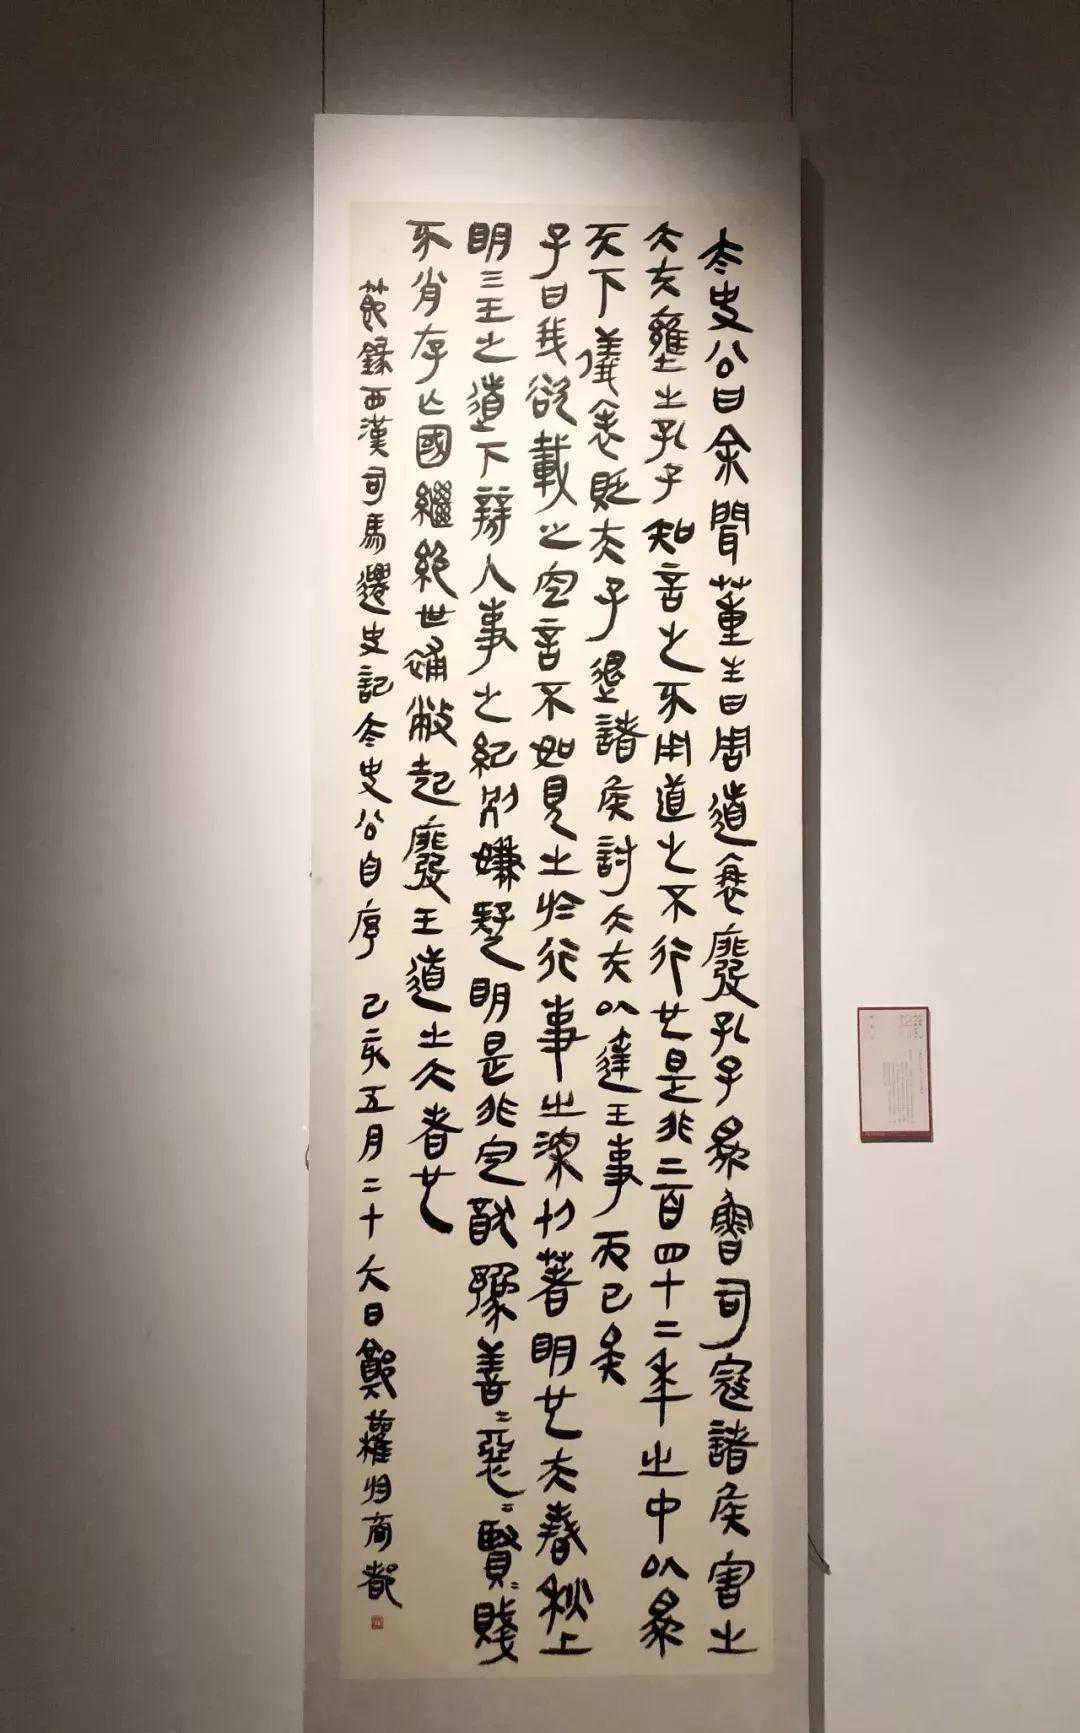 太史公曰余聞董生曰周道衰廢孔子為魯司寇諸侯害之
大夫壅之孔子知言之不用道之不行也是非二百四十二年之中以為
天下儀表貶天子退諸侯討大夫以達王事而已矣
子曰我欲載之空言不如見之於行事之深切著明也夫春秋上
明三王之道下辨人事之紀別嫌疑明是非定猶豫善=惡=賢=賤
不肖存亡國繼絕世補敝起廢王道之大者也
節錄西漢司馬遷史記太史公自序 己亥五月二十六日鄭 商都